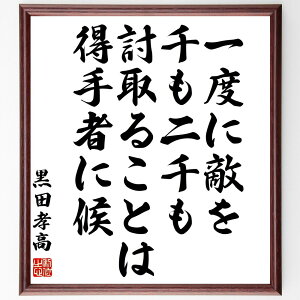 一度に敵を
千も二千も
討取ることは
得手者に候
黒田孝高